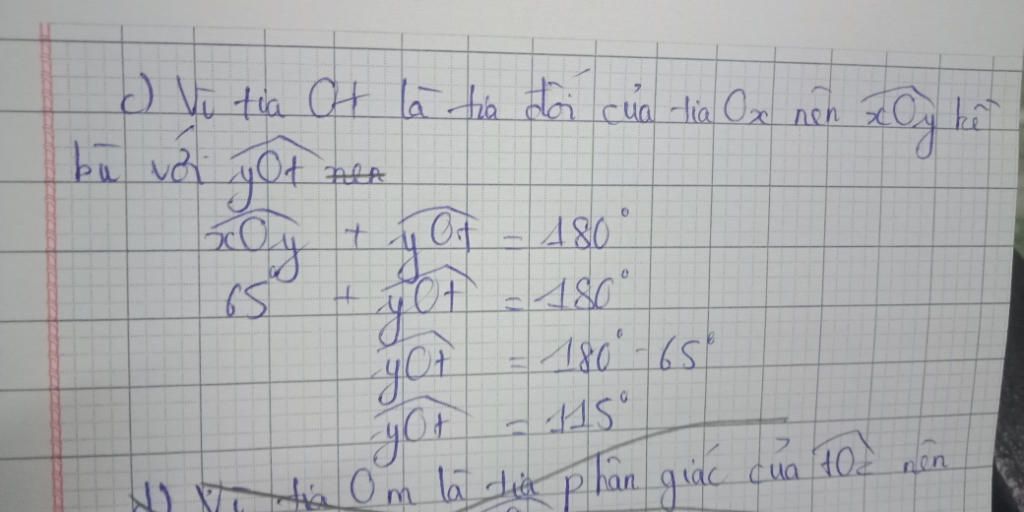 c) Vì tia Ot là tia đối của tia Ox nên xOy kề
bù với yOt nên
xOy + yOt = 180°
65° + yOt = 180°
yOt = 180° - 65°
yOt = 115°
d) Vì tia Om là tia phân giác của tOz nên